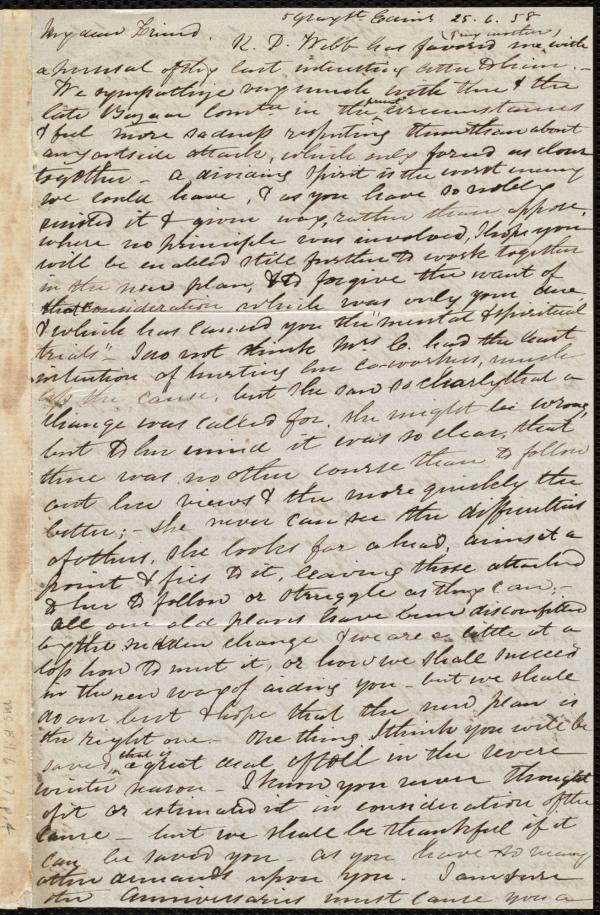 5 Gray St Edinr 25. 6. 58
My dear Friend. R. D. Webb has favored me, with
a perusal of thy last interesting letter to him. -
We sympathize very much with thee & the
late Bazaar Comtee in the present circumstances
& feel more sadness respecting them than about
any outside attack, which only forced us closer
together - a dividing spirit is the worst enemy
we could have, & as you have so nobly
resisted it & given way, rather than oppose,
where no principle was involved, I hope you
will be enabled still further to work together
in the new plan, & to forgive the want of
that consideration which was only your due
& which has caused you the "mental & spiritual
trials" - I do not think Mrs C. had the least
intention of hurting her co-workers, much
less the cause, but she saw so clearly that a
change was called for. she might be wrong,
but to her mind it was so clear, that
there was no other course than to follow
out her views & the more quickly the
better; - she never can see the difficulties
of others, she looks far ahead, aims at a
point & flies to it, leaving those attached
to her to follow or struggle as they can; -
All our old plans have been discomfitted
by the sudden change & we are a little at a
loss how to meet it, or how we shall succeed
in the new way of aiding you - but we shall
do our best & hope that the new plan is
the right one. - One thing I think you will be
saved, that is a great deal of toil in the severe
winter season - I know you never thought
of it or estimated it in consideration of the
cause - but we shall be thankful if it
can be saved you - as you have so many
other demands upon you. I am sure
the Anniversaries must cause you a